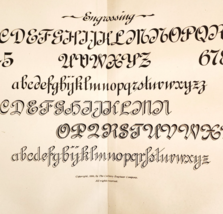 Engrossing
CDEFGHIJKLMNOPQR
5 UVWXYZ 678
abcdefghijklmnopqrstuvwxyz
CDEFGHIJKLMN
OPQRSTUVWX
abcdefghijklmnopqrstuvwxyz